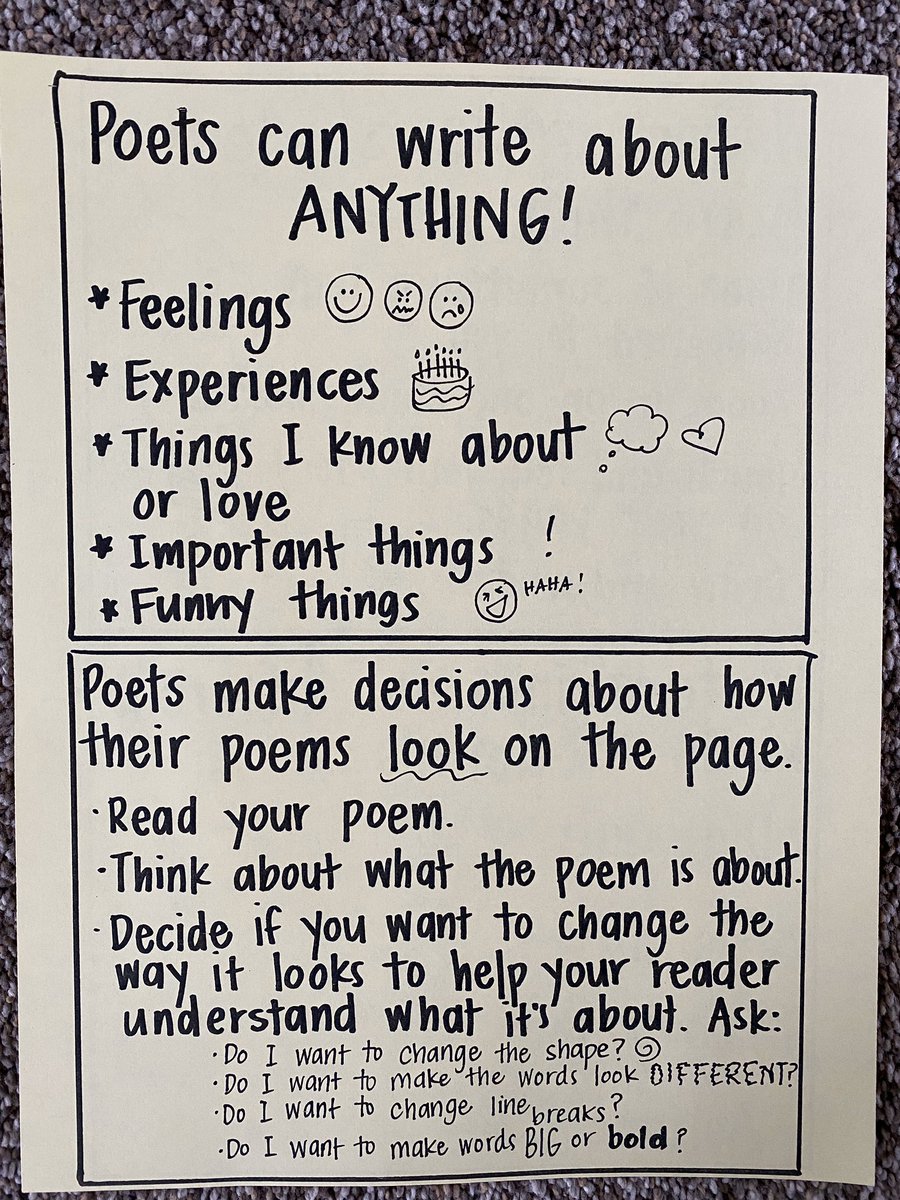 Poets can write about
ANYTHING!
* Feelings
* Experiences
* Things I know about
or love
* Important things !
* Funny things HAHA!
Poets make decisions about how
their poems look on the page.
· Read your poem.
· Think about what the poem is about.
· Decide if you want to change the
way it looks to help your reader
understand what it's about. Ask:
· Do I want to change the shape?
· Do I want to make the words look DIFFERENT?
· Do I want to change line breaks?
· Do I want to make words BIG or bold?